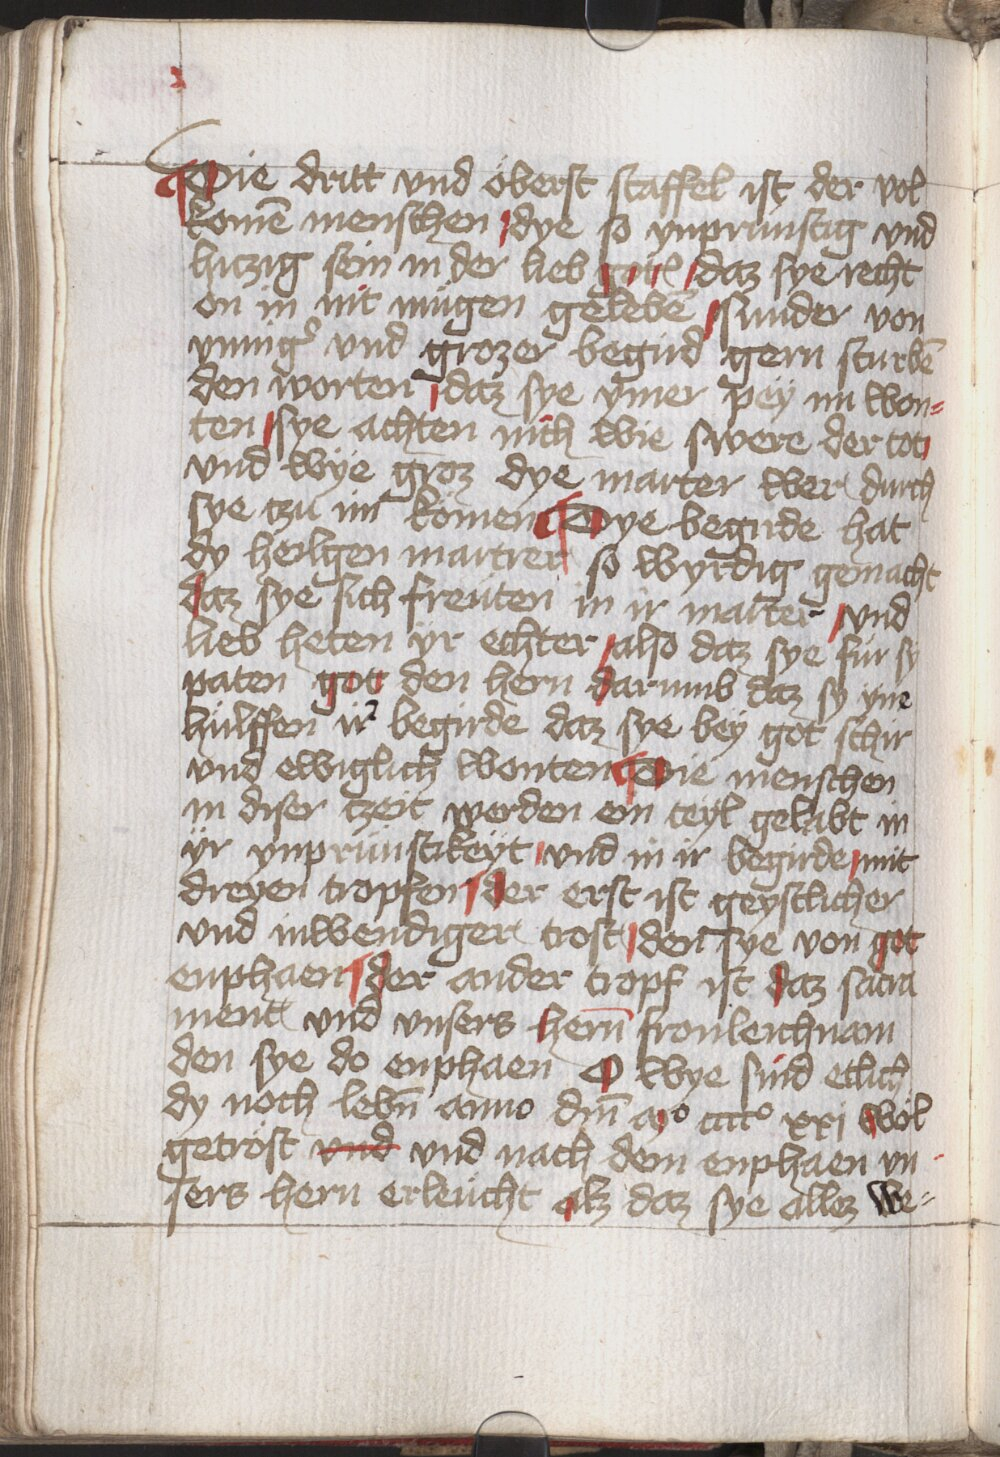 Die dritt vnd öberst staffel ist der vol
komē menschen dye so ynprünstig vnd
hiczig sein in der lieb gotꝭ daz sye recht
on in nit mügen gelebē sunder von
ynnig͛ vnd grozer begird gern sturbē
den worten daz sye ymer pey im won=
ten sye achten nich wie swere der tot
vnd wye groz dye marter wer durch
sye tzu im komen Dye begirde hat
dy heilgen martrer so wyrdig gemacht
daz sye sich freüten in ir marter vnd
lieb heten yr echter also daz sye für sy
paten got den hern darumb daz sy yne
hülffen ir͛ begirde daz sye bey got schir
vnd ewiglich wonten Die menschen
in diser tzeit werden ein teyl gelabt in
yr ynprünstikeyt vnd in ir begirde mit
dreyen tropfen der erst ist geystlicher
vnd inwendiger trost den sye von got
enphaen der ander tropf ist daz sacra
ment vnd vnsers hern̄ fronleichnam
den sye do enphaen O wye sind etlich
dy noch lebn̄ anno dm̄ mo cccco xxi wol
getröst vnd vnd nach dem enphaen vn
sers hern erleücht alz daz sye allez we=